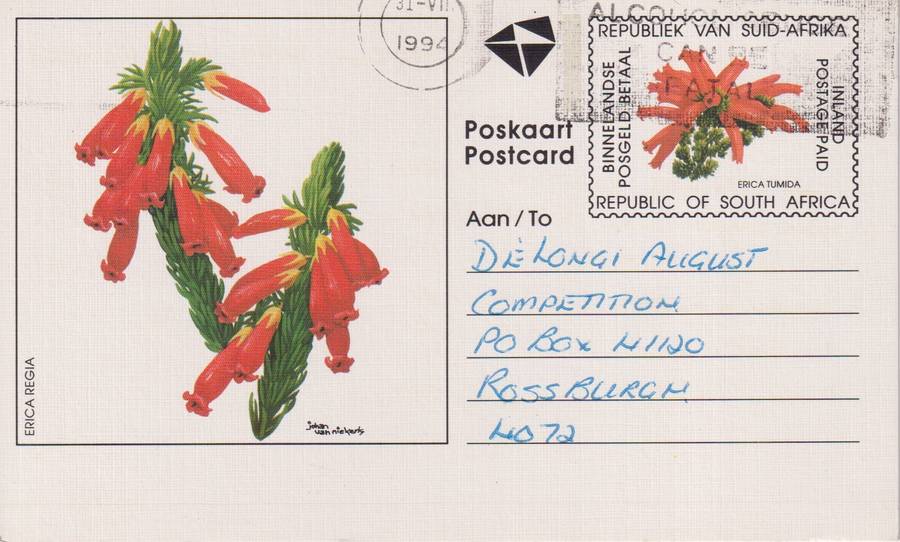 31-VII
1994
ALCOHOL
CAN BE
FATAL
REPUBLIEK VAN SUID-AFRIKA
BINNELANDSE
POSGELD BETAAL
INLAND
POSTAGE PAID
ERICA TUMIDA
REPUBLIC OF SOUTH AFRICA
Poskaart
Postcard
Aan / To
DÈLONGI AUGUST
COMPETITION
PO BOX 41120
ROSSBURGH
4072
ERICA REGIA
johan
van niekerk